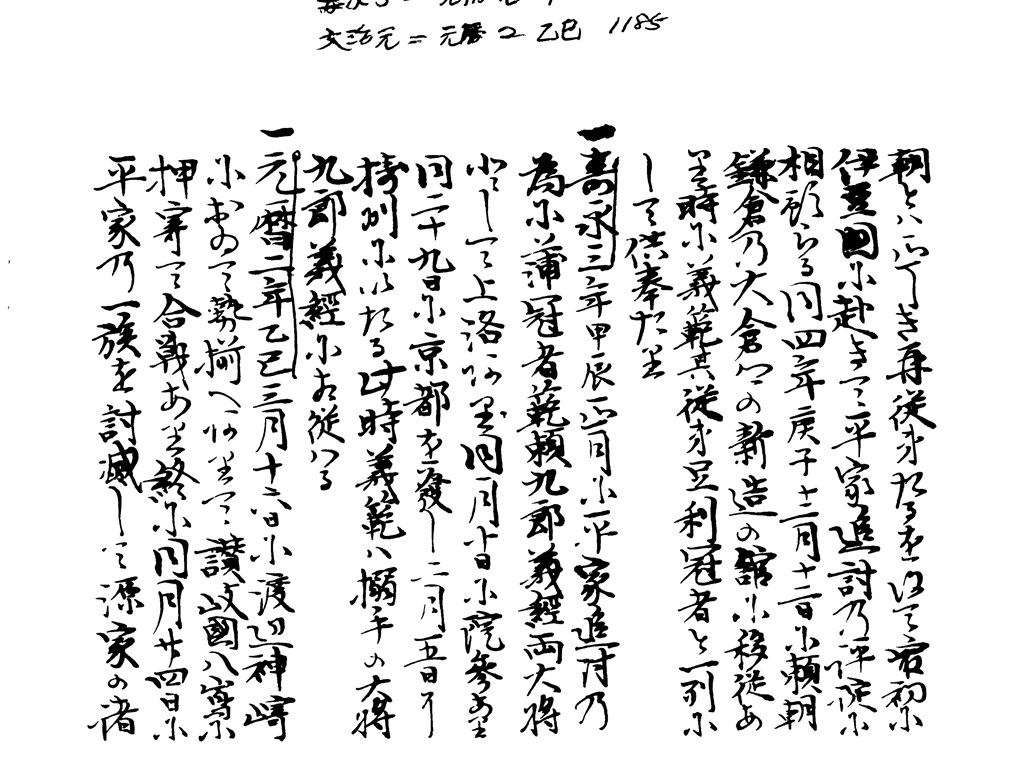 文治元=元暦2乙巳 1185
伊豆國に赴きて平家追討の評定に
相顧らる同四年庚子十二月十二日に頼朝
鎌倉の大倉への新造の舘に移徙あ
り時に義範其従弟足利冠者と一列に
して供奉たり
一壽永三年甲辰正月に平家追討の
為に蒲冠者範頼九郎義經両大将
として上洛あり同月十日に院參あり
同二十九日に京都を發し二月五日に
摂州にいたる此時義範ハ搦手の大将
九郎義經に相従ハる
一元暦二年乙巳三月十六日に渡辺神崎
において勢揃へありて讃岐國八嶋に
押寄て合戰あり終に同月廿四日に
平家の一族を討滅して源家の諸